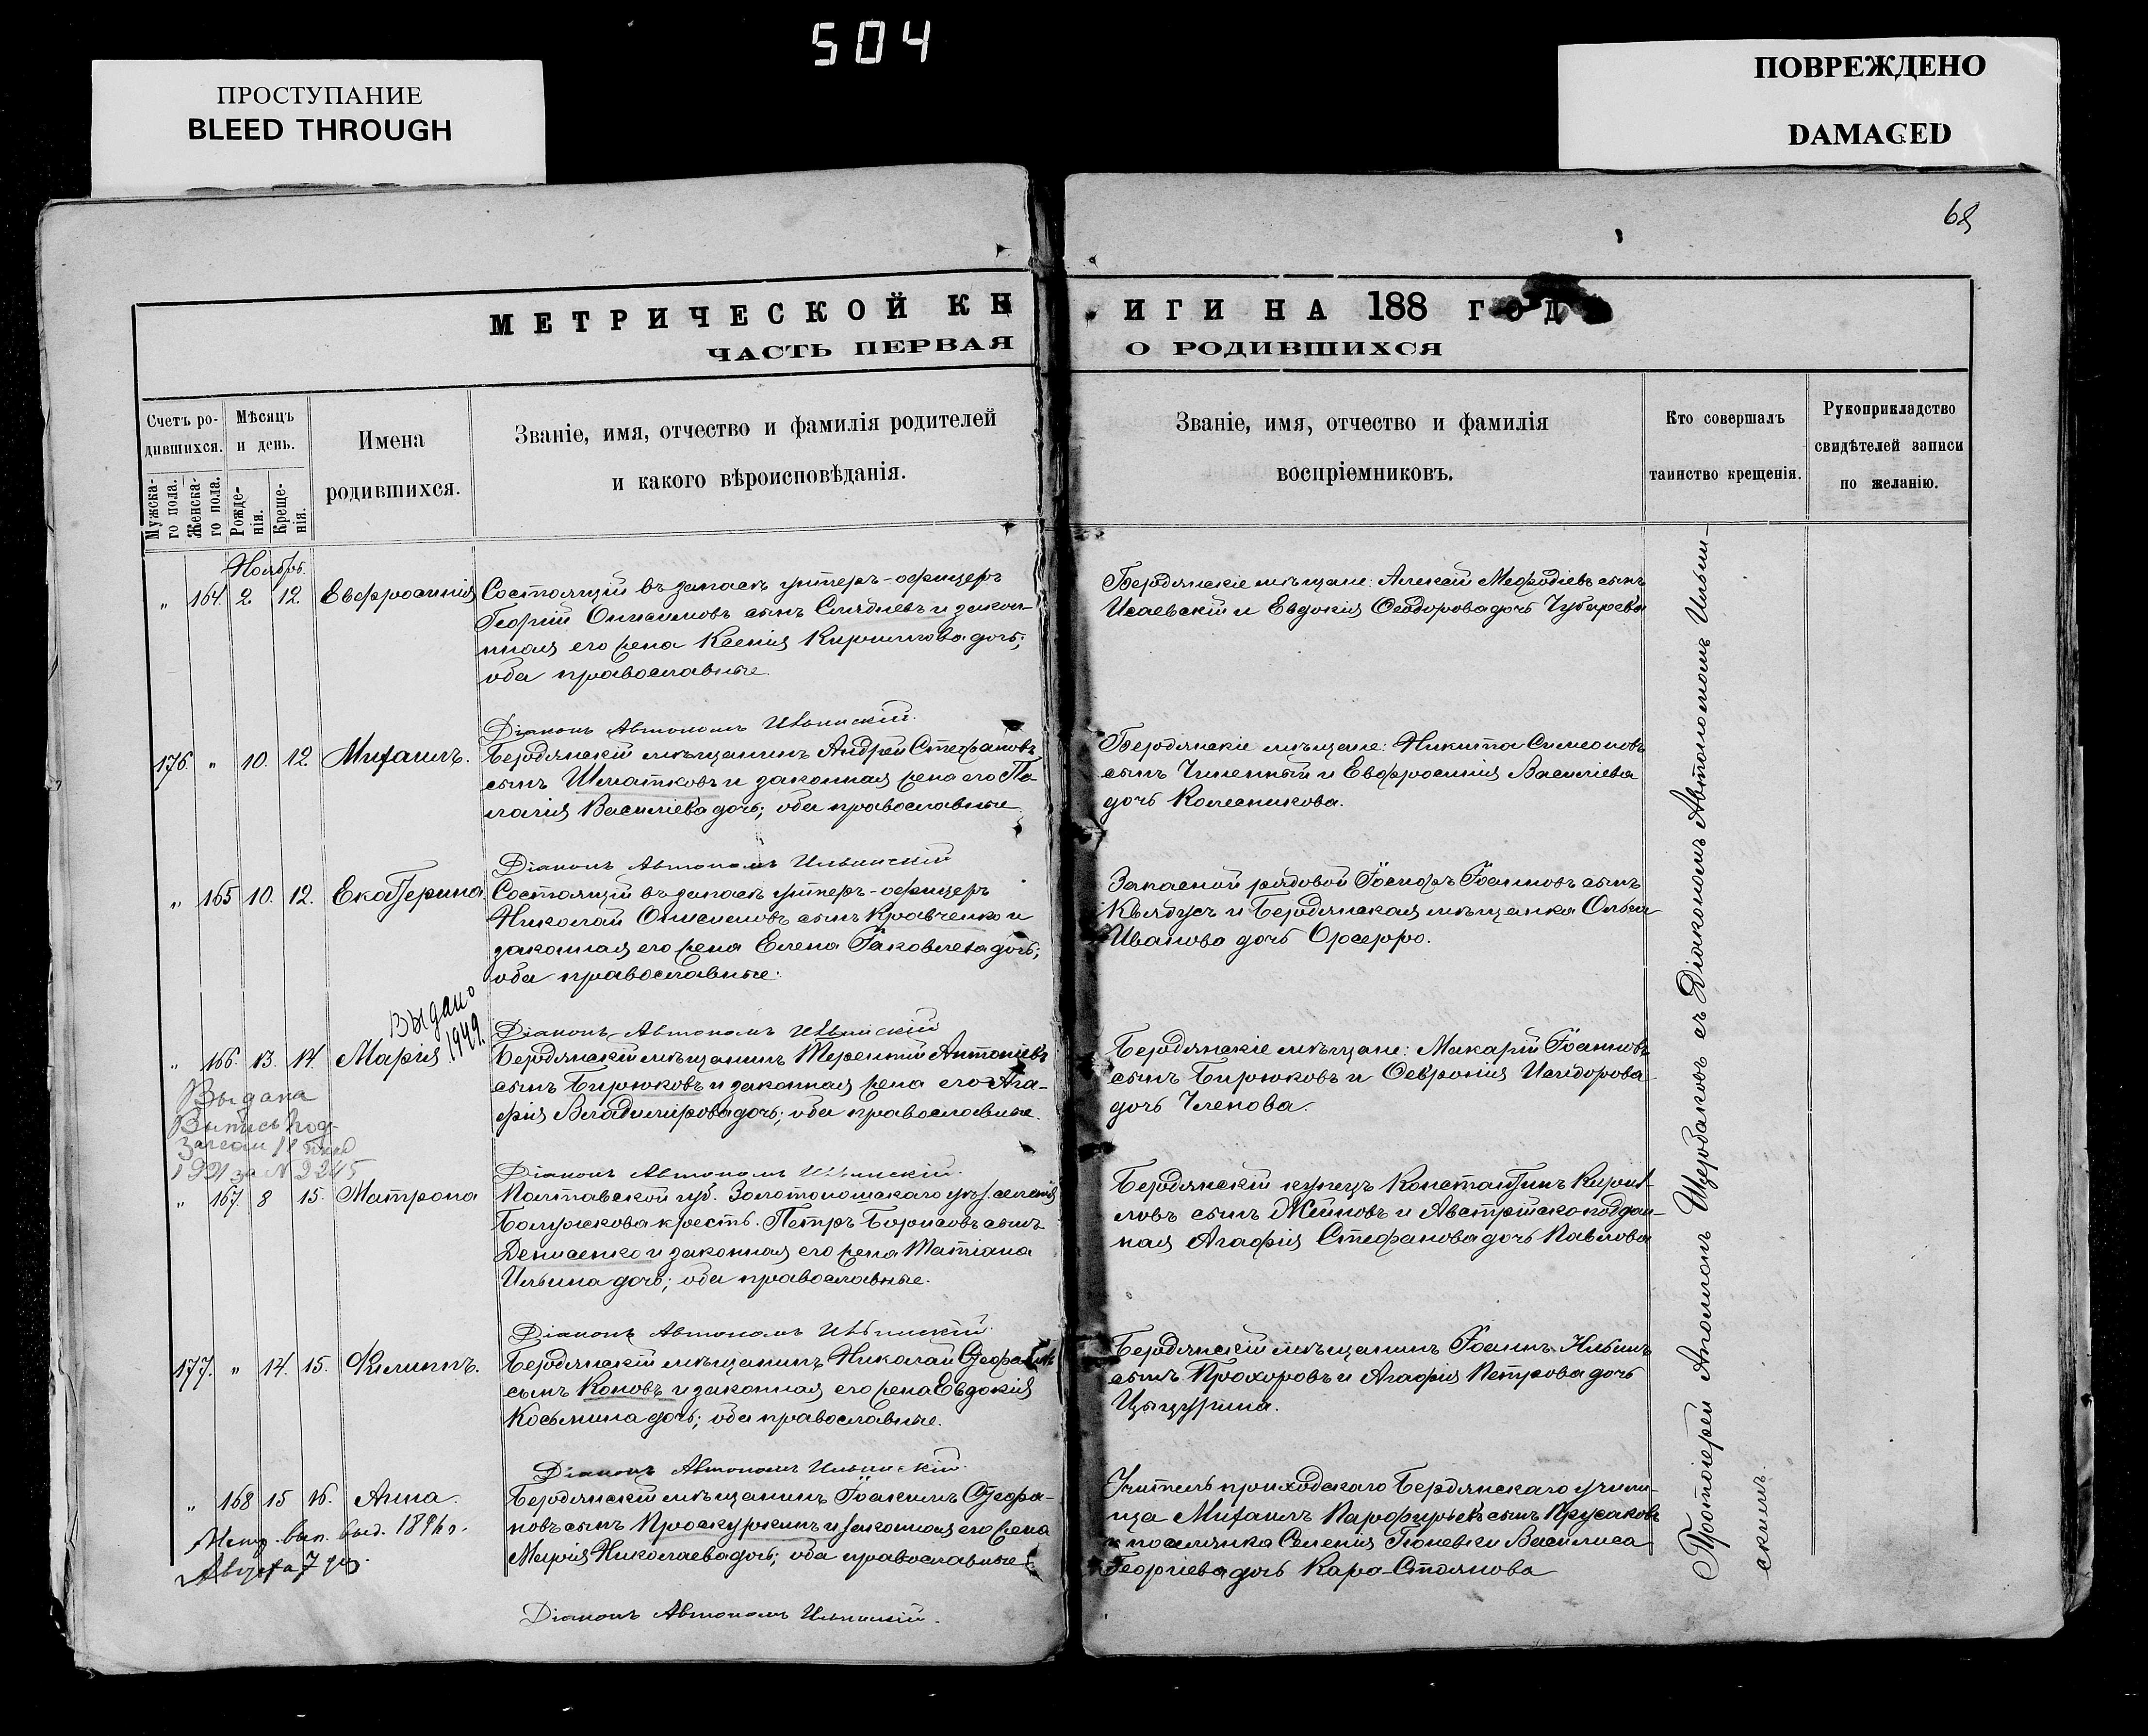 504
ПРОСТУПАНИЕ
BLEED THROUGH
ПОВРЕЖДЕНО
DAMAGED
68
МЕТРИЧЕСКОЙ КН
ИГИ НА 188 ГОД
ЧАСТЬ ПЕРВАЯ
О РОДИВШИХСЯ
Счетъ ро-
дившихся.
Мужска-
го пола.
Женска-
го пола.
Мѣсяцъ
и день.
Рожде-
нія.
Креще-
нія.
Имена
родившихся.
Званіе, имя, отчество и фамилія родителей
и какого вѣроисповѣданія.
Званіе, имя, отчество и фамилія
воспріемниковъ.
Кто совершалъ
таинство крещенія.
Рукоприкладство
свидѣтелей записи
по желанію.
Ноябрь.
" 164. 2. 12. Евфросинія
Состоящій въ запасѣ унтеръ-офицеръ
Георгій Онисимовъ сынъ Слѣдневъ и закон-
ная его жена Ксенія Кириллова дочь;
оба православные.
Бердянскіе мѣщане: Алексій Меѳодіевъ сынъ
Исаевскій и Евдокія Ѳеодорова дочь Чубарева
Діаконъ Автономъ Ильинскій.
176. " 10. 12. Михаилъ.
Бердянскій мѣщанинъ Андрей Стефановъ
сынъ Шматковъ и законная жена его Пе-
лагія Василіева дочь; оба православные
Бердянскіе мѣщане: Никита Симеоновъ
сынъ Чиненный и Евфросинія Василіева
дочь Колесникова.
Діаконъ Автономъ Ильинскій
" 165 10. 12. Екатерина
Состоящій въ запасѣ унтеръ-офицеръ
Николай Онисимовъ сынъ Кравченко и
законная его жена Елена Іаковлева дочь;
оба православные.
Запасной рядовой Іосифъ Іоанновъ сынъ
и Бердянская мѣщанка Ольга
Иванова дочь
Діаконъ Автономъ Ильинскій
Выдано
1949.
" 166. 13. 14. Марія
Бердянскій мѣщанинъ Терентій Антоніевъ
сынъ Бирюковъ и законная жена его Ага-
фія Владимірова дочь; оба православные.
Бердянскіе мѣщане: Макарій Іоанновъ
сынъ Бирюковъ и Ѳевронія Исидорова
дочь Членова.
Выдана
Выпись
1921 за № 2245
Діаконъ Автономъ Ильинскій.
" 167. 8 15. Матрона
Полтавской губ. Золотоношскаго уѣз. селенія
крестъ. Петръ Борисовъ сынъ
Денисенко и законная его жена Татіана
Ильина дочь; оба православные.
Бердянскій купецъ Константинъ Кирил-
ловъ сынъ и Австрійско поддан-
ная Агафія Стефанова дочь Павлова
Діаконъ Автономъ Ильинскій.
177. " 14. 15. Филиппъ.
Бердянскій мѣщанинъ Николай Стефановъ
сынъ Коновъ и законная его жена Евдокія
Косьмина дочь; оба православные.
Бердянскій мѣщанинъ Іоаннъ Ильинъ
сынъ Прохоровъ и Агафія Петрова дочь
Діаконъ Автономъ Ильинскій.
" 168 15 16. Анна.
Бердянскій мѣщанинъ Іоакимъ Стефа-
новъ сынъ Проскуркинъ и законная его жена
Марія Николаева дочь; оба православные
Учитель приходскаго Бердянскаго учили-
ща Михаилъ Парфирьевъ сынъ Прусаковъ
и поселянка селенія Гюневки Василиса
Георгіева дочь Кара-Стоянова
Метр. вып. выд. 1896 г.
Августа 7 дня.
Діаконъ Автономъ Ильинскій.
Протоіерей Аполлонъ Щербаковъ съ Діакономъ Автономомъ Ильин-
скимъ.